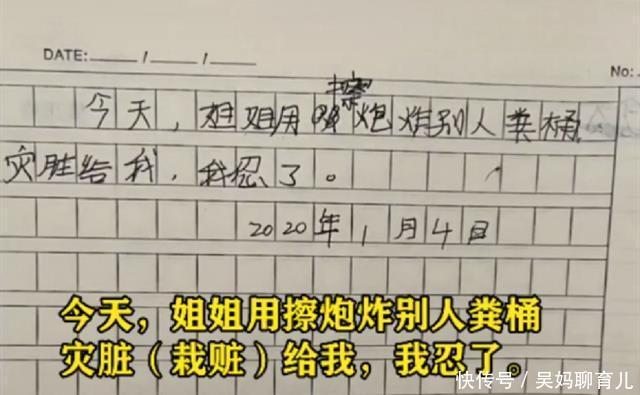 DATE: / /
No:
擦
今天，姐姐用炮炸别人粪桶
灾脏给我，我忍了。
2020年1月4日
今天，姐姐用擦炮炸别人粪桶
灾脏（栽赃）给我，我忍了。
快传号/吴妈聊育儿